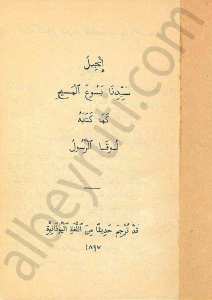 إنجيل
سيدنا يسوع المسيح
كما كتبه
لوقا الرسول
قد تُرجم حديثًا من اللغة اليونانية
١٨٩٧
albeyruti.com